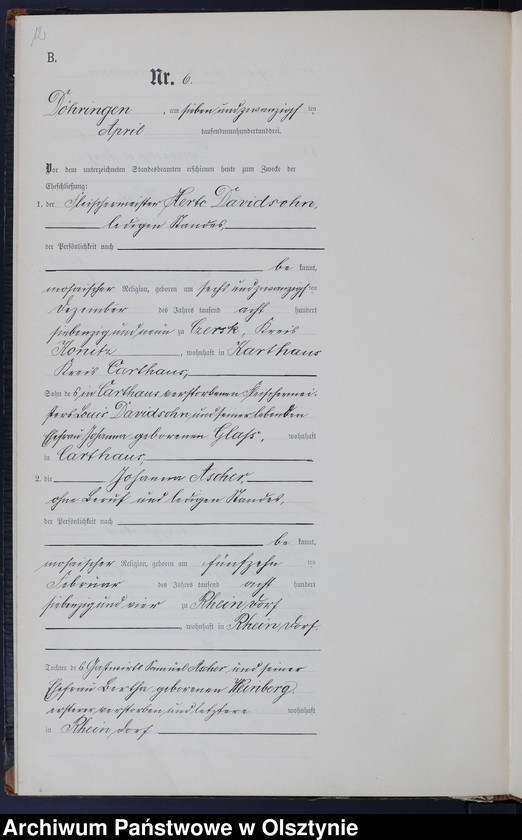 12
B.
Nr. 6.
Döhringen, am sieben und zwanzigsten
April tausendneunhundertunddrei.
Vor dem unterzeichneten Standesbeamten erschienen heute zum Zwecke der
Eheschließung:
1. der Fleischermeister Davidsohn,
ledigen Standes
der Persönlichkeit nach
be kannt,
mosaischer Religion, geboren am sechs und zwanzigsten
Dezember des Jahres tausend acht hundert
siebenzig und neun zu Czersk, Kreis
Konitz, wohnhaft in Karthaus
Kreis Carthaus,
Sohn des in Carthaus verstorbenen Fleischermei-
sters Louis Davidsohn und seiner lebenden
Ehefrau Johanna geborenen Glass, wohnhaft
in Carthaus,
2. die Johanna Ascher,
ohne Beruf und ledigen Standes,
der Persönlichkeit nach
be kannt,
mosaischer Religion, geboren am fünfzehnten
Februar des Jahres tausend acht hundert
siebenzig und vier zu Rhein, dorf
wohnhaft in Rhein, dorf.
Tochter des Gastwirts Samuel Ascher und seiner
Ehefrau Bertha geborenen Weinberg,
ersterer verstorben, und letztere wohnhaft
in Rhein, dorf
Archiwum Państwowe w Olsztynie